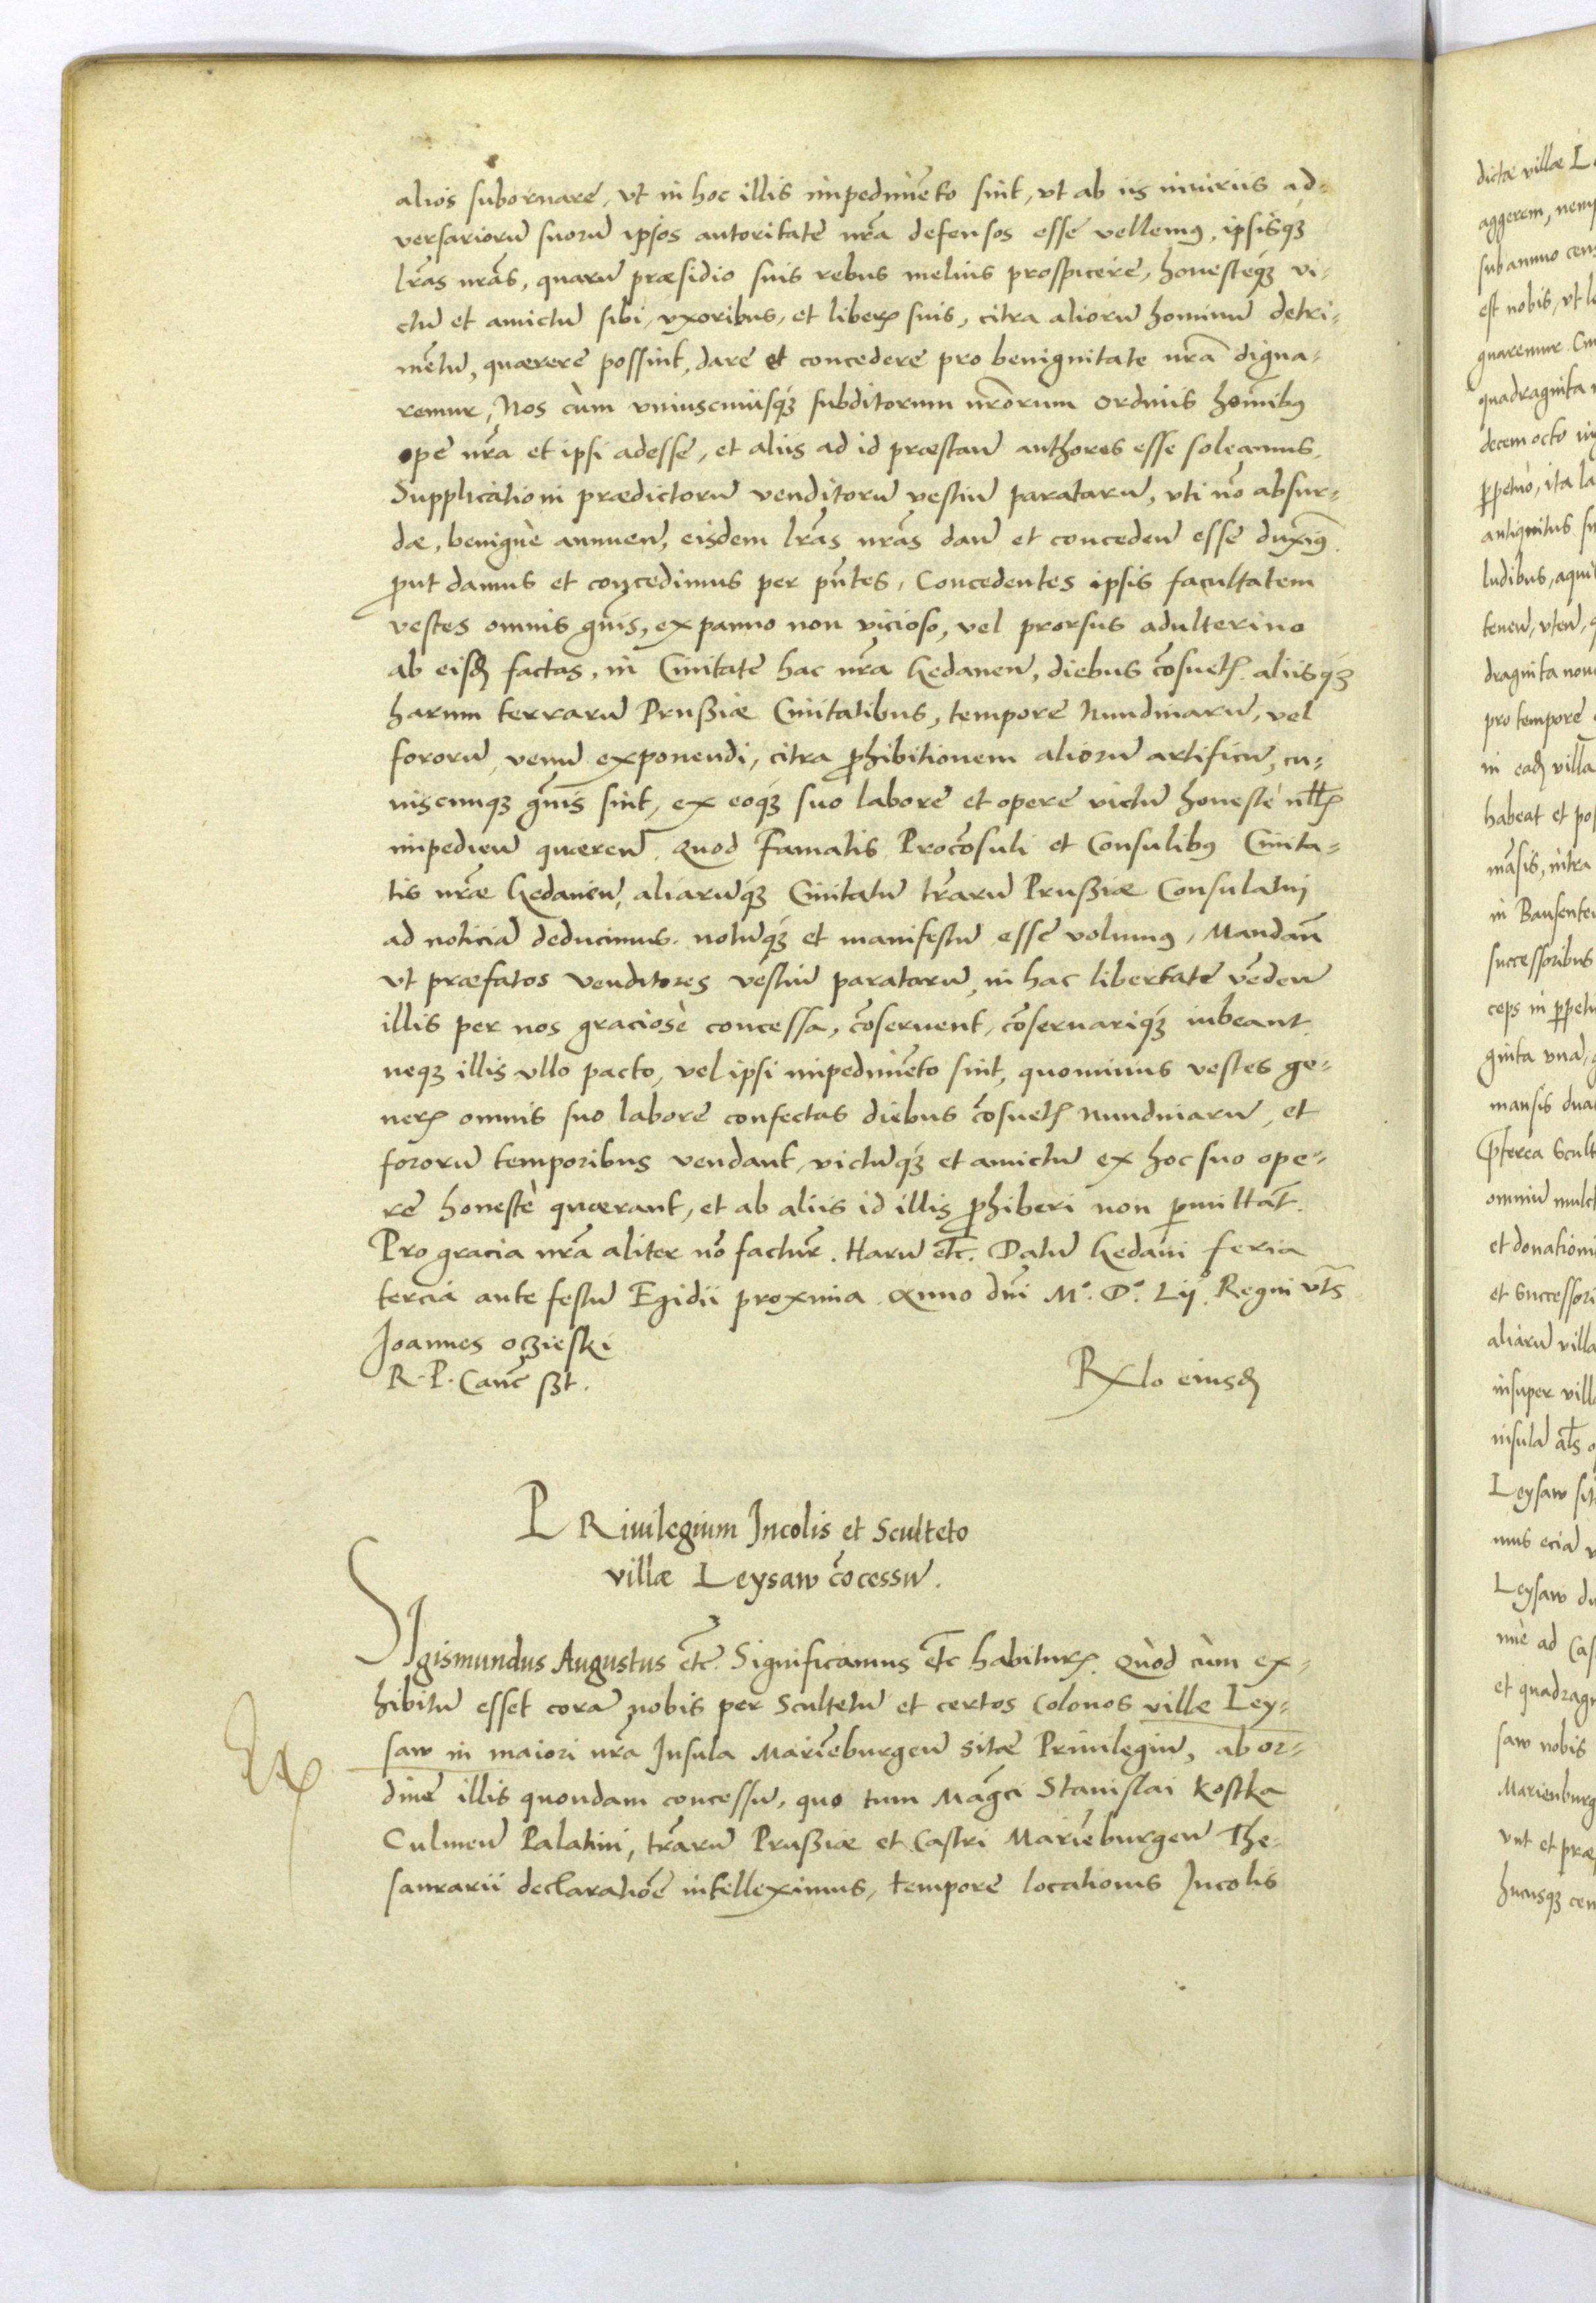 alios subornare, vt in hoc illis impedimẽto sint, vt ab iis iniuriis ad=
versariorũ suorũ ipsos autoritate nr̃a defensos esse vellemꝰ, ipsisqꝫ
lr̃as nr̃as, quarũ præsidio suis rebus melius prospicere, honesteqꝫ vi=
ctũ et amictũ sibi, vxoribus, et liberꝭ suis, citra aliorũ hominũ detri=
mẽtũ, quærere possint, dare et concedere pro benignitate nr̃a digna=
remur, Nos cùm vniuscuiusqꝫ subditorum nr̃orum ordinis hoĩnibꝰ
ope nr̃a et ipsi adesse, et aliis ad id præstañ authores esse soleamus,
Supplicationi prædictorũ venditorũ vestiũ paratarũ, vti nõ absur=
dæ, benignè annueñ, eisdem lr̃as nr̃as dañ et concedeñ esse duximꝰ.
ꝓut damus et concedimus per pñtes, Concedentes ipsis facultatem
vestes omnis gñis, ex panno non vicioso, vel prorsus adulterino
ab eisđ factas, in Ciuitate hac nr̃a Gedaneñ, diebus cõsuetꝭ aliisqꝫ
harum terrarũ Prussiæ Ciuitatibus, tempore Nundinarũ, vel
fororũ, venũ exponendi, citra ꝓhibitionem aliorũ artificũ, cu=
iuscunqꝫ gñis sint, ex eoqꝫ suo labore et opere victũ honestè nllꝭ
impedieñ quæreñ. Quod Famatis Procõsuli et Consulibꝰ Ciuita=
tis nr̃æ Gedaneñ, aliarũqꝫ Ciuitatũ tr̃arũ Prussiæ Consulatui
ad noticiã deducimus, notũqꝫ et manifestũ esse volumꝰ, Mandañ
vt præfatos venditores vestiũ paratarũ, in hac libertate vẽdeñ
illis per nos graciosè concessa, cõseruent, cõseruariqꝫ iubeant
neqꝫ illis vllo pacto, vel ipsi impedimẽto sint, quominus vestes ge=
nerꝭ omnis suo labore confectas diebus cõsuetꝭ nundinarũ, et
fororũ temporibus vendant, victũqꝫ et amictũ ex hoc suo ope=
re honestè quærant, et ab aliis id illis ꝓhiberi non ꝑmittãt.
Pro gracia nr̃a aliter nõ factur̃. Harũ etc̃. Datũ Gedani feria
tercia ante festũ Egidii proxima. Anno dñi M.º D.º Lij.º Regni vts̃
Joannes oczieski
R. P. Canc̃ sst.
Rx̃lo eiusđ
PRiuilegium Incolis et Sculteto
villæ Leysaw cõcessũ.
SIgismundus Augustus etc̃. Significamus etc̃ habiturꝭ. Quòd cùm ex=
hibitũ esset corã nobis per Scultetũ et certos Colonos villæ Ley=
saw in maiori nr̃a Insula Mariẽburgeñ sitæ Priuilegiũ, ab or=
dine illis quondam concessũ, quo tum Mãgci Stanislai Kostka
Culmeñ Palatini, tr̃arũ Prussiæ et Castri Mariẽburgeñ The=
saurarii declaratiõe intelleximus, tempore locationis Incolis
Ex
dictæ villæ
aggerem,
sub annuo
est nobis, vt
quadraginta
decem octo
ꝑpetuò, ita
antiquitus
ludibus,
teneñ, vteñ,
draginta
pro tempore
in eađ villa
habeat et
mãsis, intra
successoribus
ceps in ꝑpetu
ginta vna,
mansis
omniũ
et donationi
et Successori
aliarũ villa
insuper vill
insula als̃
Leysaw
mus eciã
Leysaw
nuè ad
et quadrag
saw nobis
Marienburg
vnt et præ
hucusqꝫ